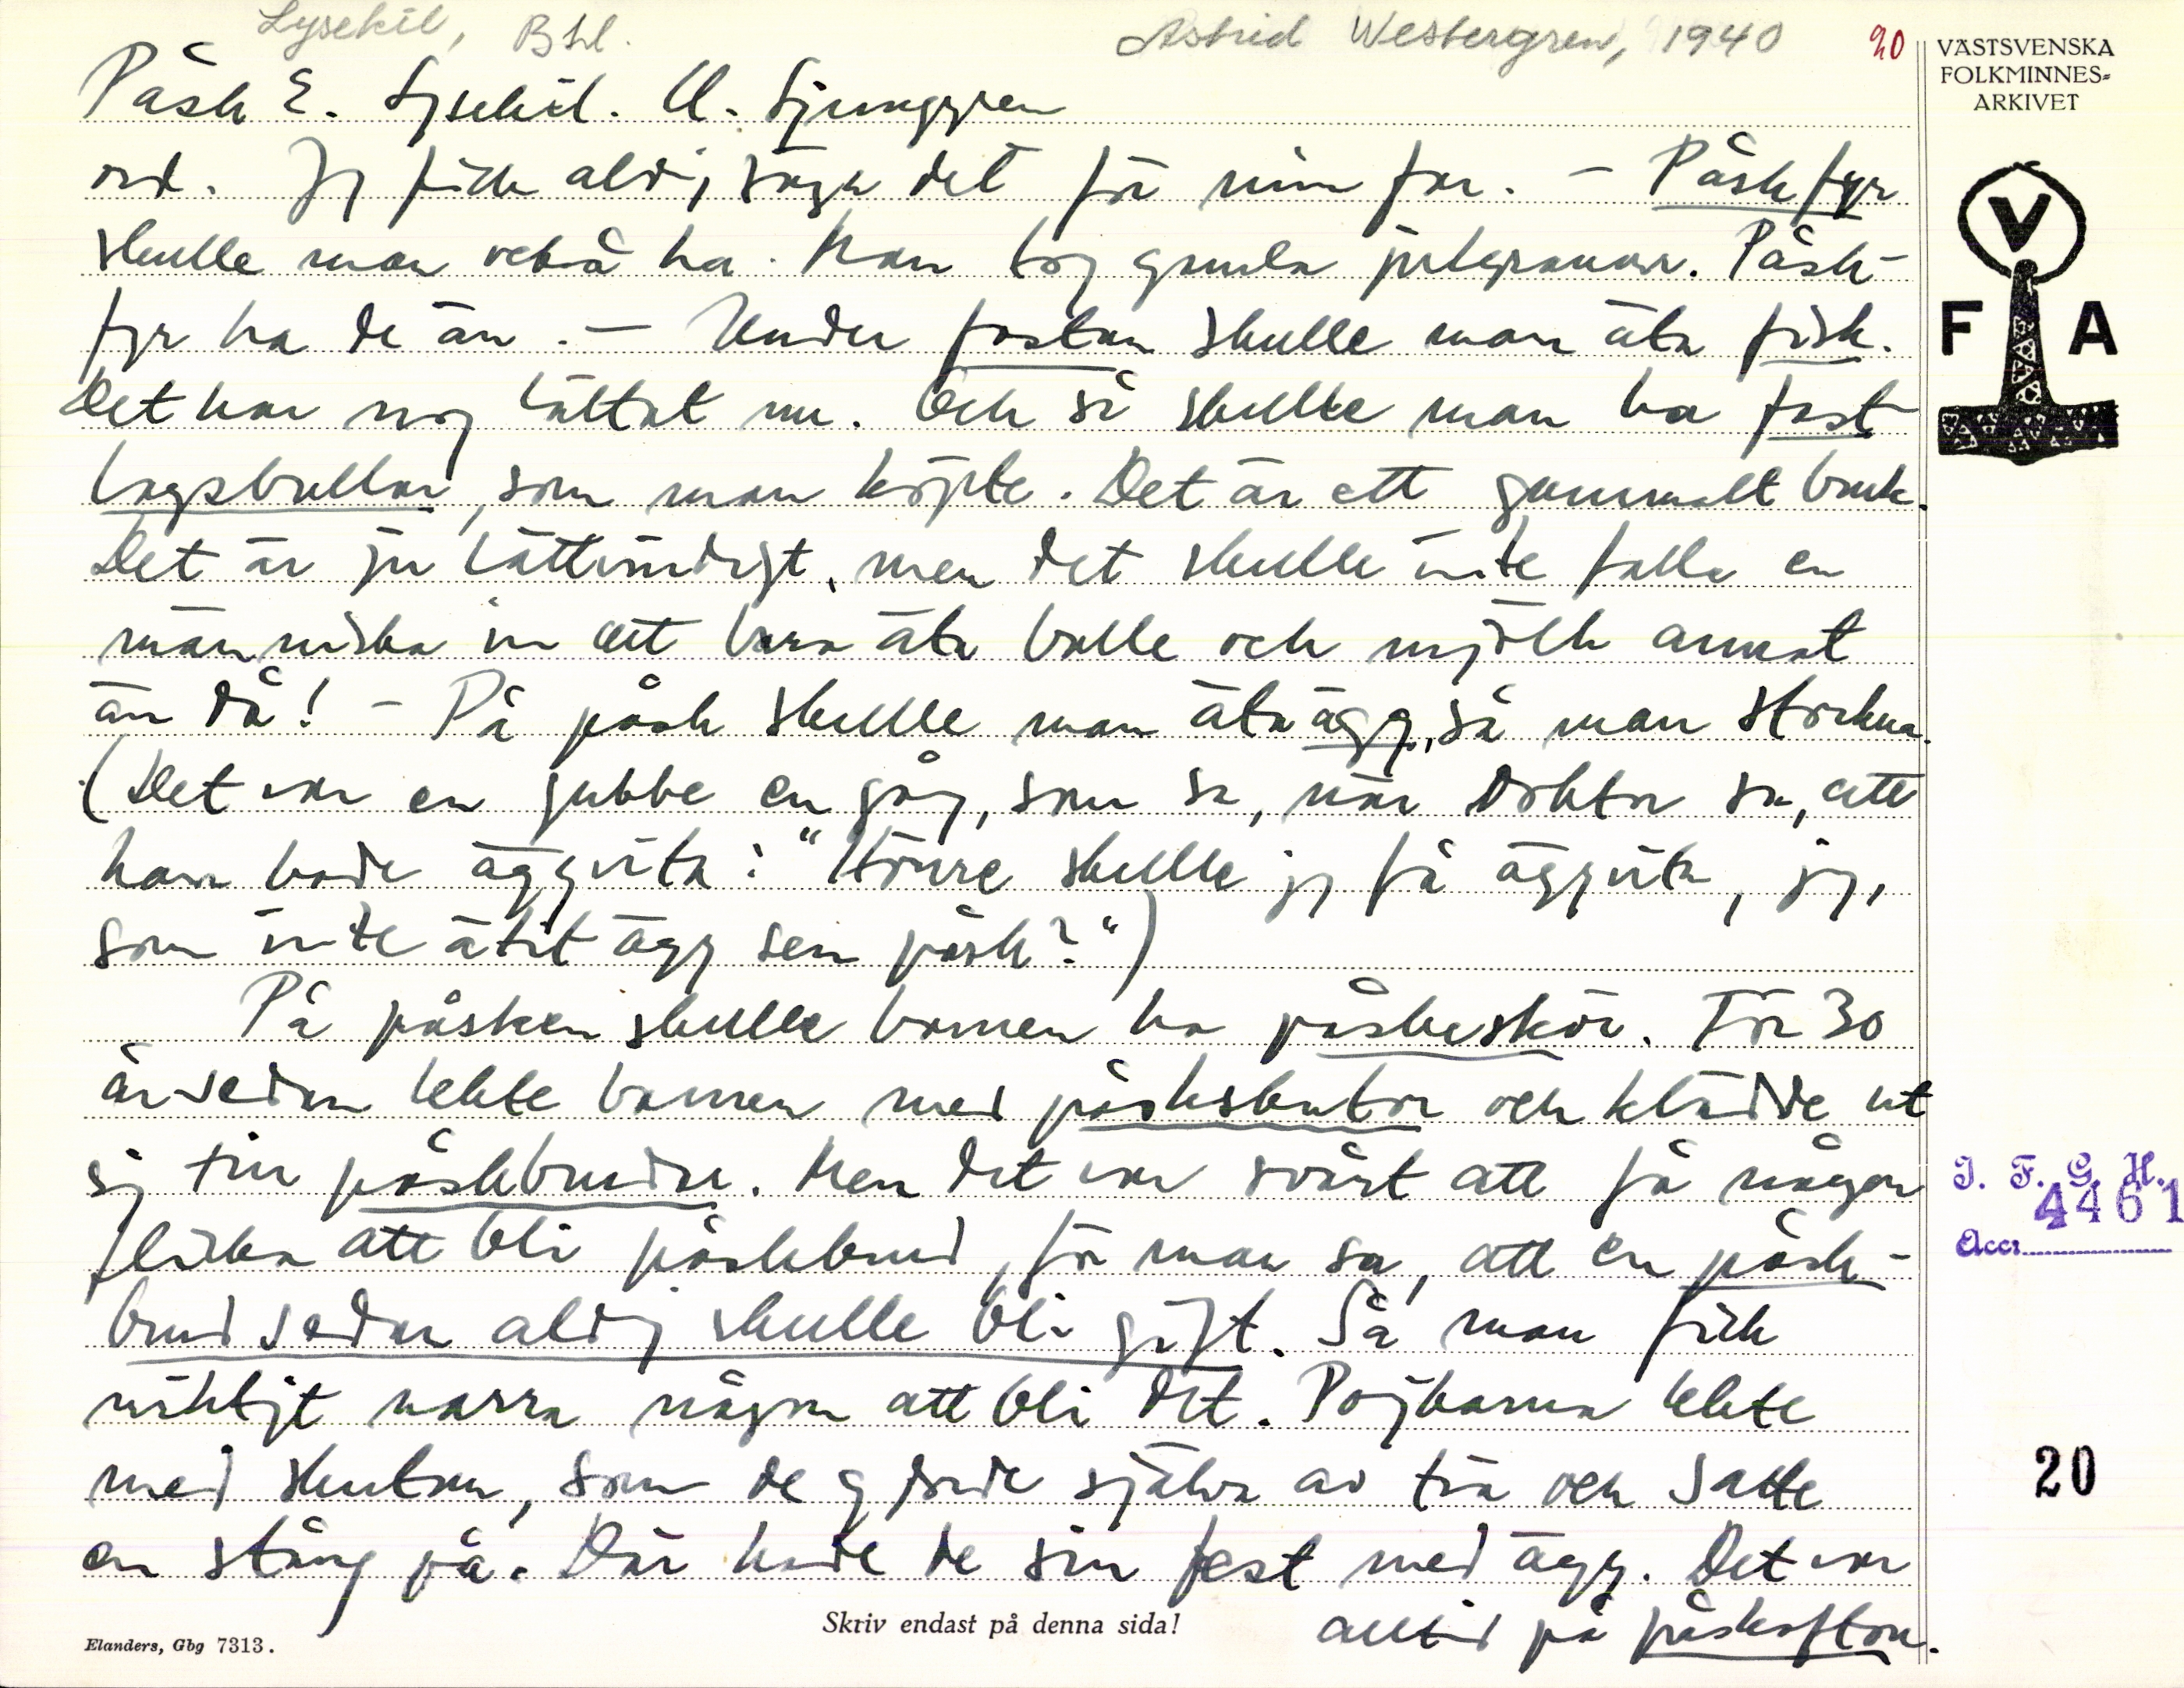 Lysekil, Bhl. Astrid Westergren, 1940 20
VÄSTSVENSKA
FOLKMINNES-
ARKIVET
V
F A
Påsk E. Lysekil. U. Ljunggren
ord. Jag fick aldrig säga det för min far. – Påskfyr
skulle man också ha. Man tog gamla julgranar. Påsk-
fyr ha de än. – Under fastan skulle man äta fisk.
Det har nog lättat nu. Och så skulle man ha fast
lagsbullar, som man köpte. Det är ett gammalt bruk.
Det är ju lättvindigt, men det skulle inte falla en
människa in att bara äta bulle och mjölk annat
än då! – På påsk skulle man äta ägg, så man storkna.
(Det var en gubbe en gång, som sa, när doktor sa, att
han hade äggvita: "Hörre skulle jag få äggvita, jag,
som inte ätit ägg sen påsk?")
På påsken skulle barnen ha påskeskör. För 30
år sedan lekte barnen med påskskutor och klädde ut
sig till påskbrudar. Men det var svårt att få någon
flicka att bli påskbrud, för man sa, att en påsk-
brud sedan aldrig skulle bli gift. Så man fick
riktigt narra någon att bli det. Pojkarna lekte
med skutan, som de gjorde själva av trä och satte
en stång på. Där hade de sin fest med ägg. Det var
alltid på påskafton.
Skriv endast på denna sida!
Elanders, Gbg 7313.
I. F. G. H.
4461
Acc.
20